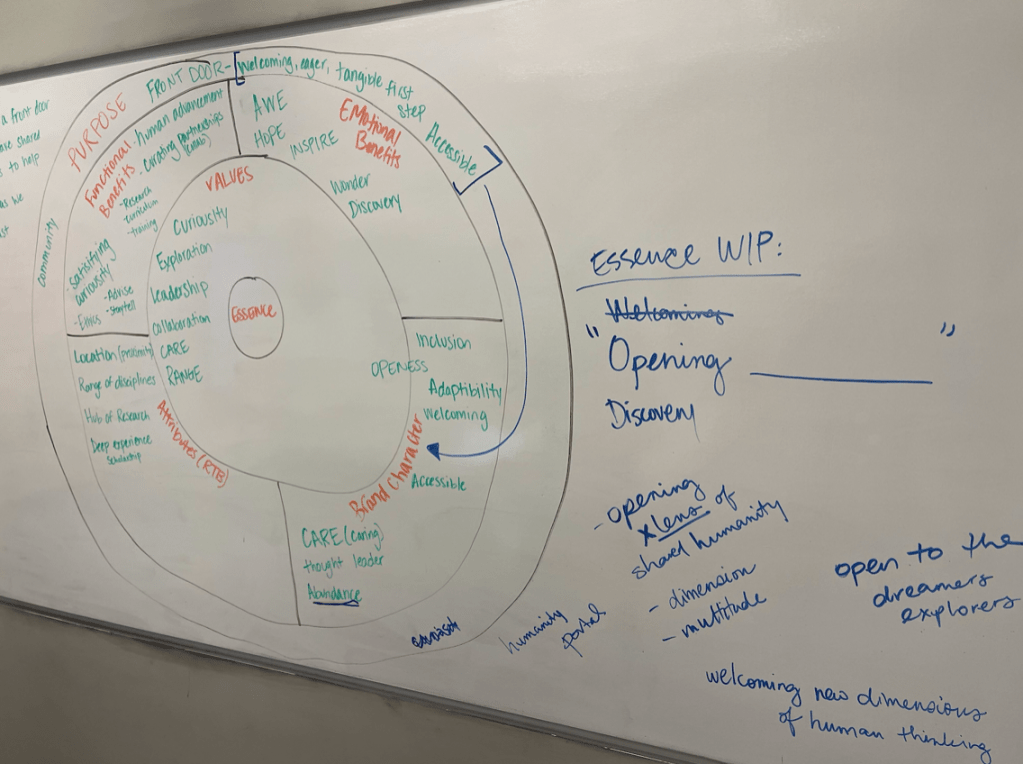 a front door
shared
to help
as we
PURPOSE
FRONT DOOR - [Welcoming, eager, tangible first
step
Accessible]
community
Functional
Benefits
- human advancement
- curating partnerships
(collab)
- Research
- curriculum
- training
- satisfying
curiousity
- Advise
- Ethics - Storytell
AWE
HOPE
INSPIRE
EMotional
Benefits
Wonder
Discovery
VALUES
Curiousity
Exploration
Leadership
Collaboration
CARE
RANGE
ESSENCE
Location (proximity)
Range of disciplines
Hub of Research
Deep experience
scholarship
Attributes (RTB)
Inclusion
OPENESS
Adaptibility
Welcoming
Brand Character
Accessible
CARE (caring)
thought leader
Abundance
ESSENCE WIP:
Welcoming
" Opening ________ "
Discovery
- opening
x lens of
shared humanity
- dimension
- multitude
humanity
portal
open to the
dreamers
explorers
welcoming new dimensions
of human thinking